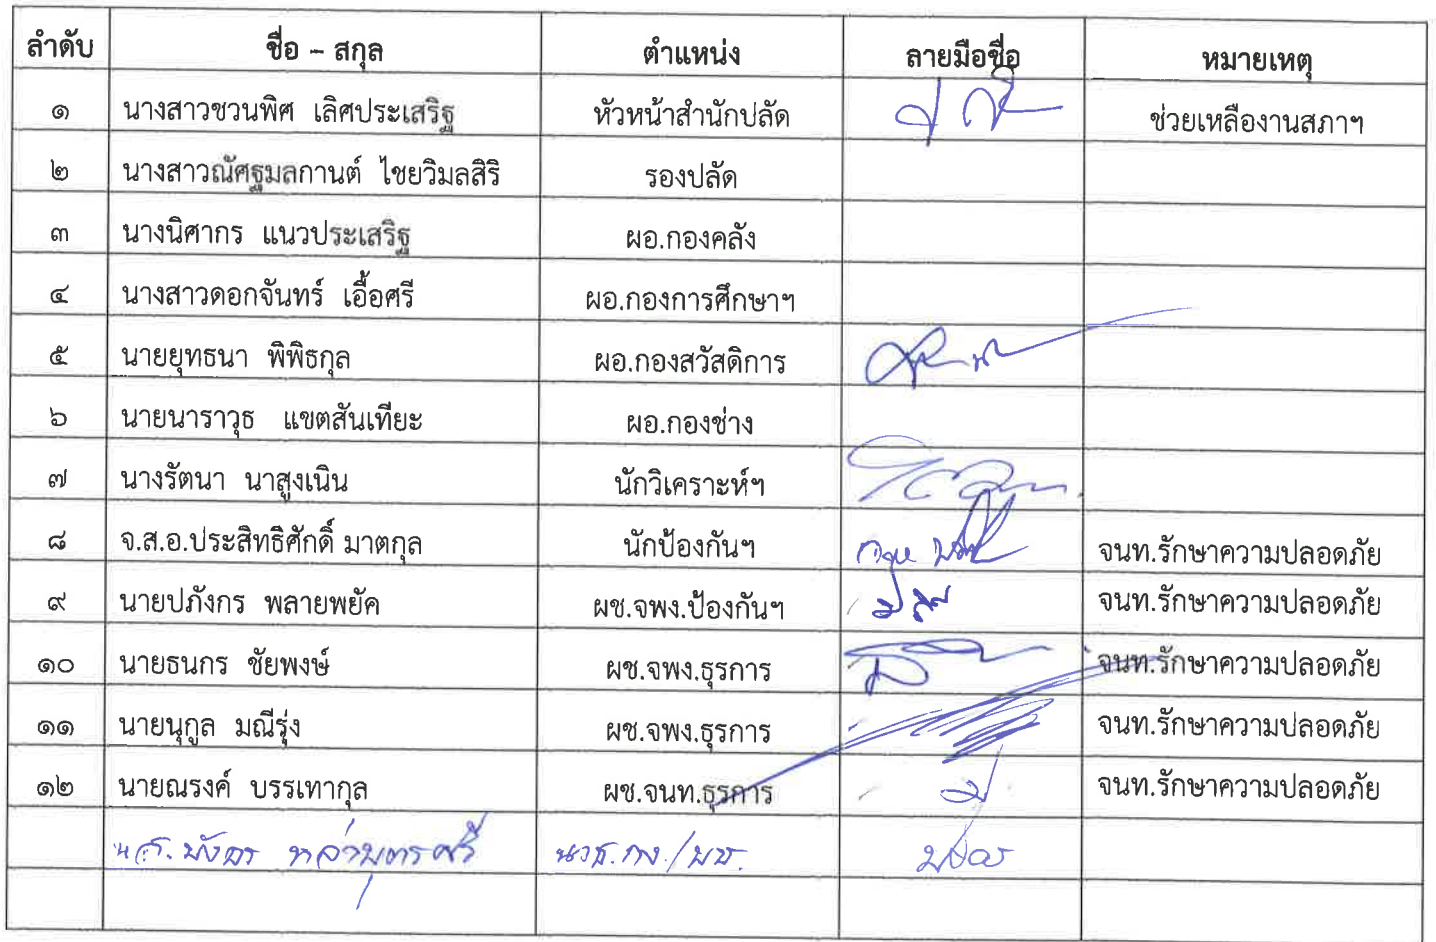 ลำดับ ชื่อ – สกุล ตำแหน่ง ลายมือชื่อ หมายเหตุ
๑ นางสาวชวนพิศ เลิศประเสริฐ หัวหน้าสำนักปลัด ช่วยเหลืองานสภาฯ
๒ นางสาวณัศฐมลกานต์ ไชยวิมลสิริ รองปลัด
๓ นางนิศากร แนวประเสริฐ ผอ.กองคลัง
๔ นางสาวดอกจันทร์ เอื้อศรี ผอ.กองการศึกษาฯ
๕ นายยุทธนา พิพิธกุล ผอ.กองสวัสดิการ
๖ นายนาราวุธ แขตสันเทียะ ผอ.กองช่าง
๗ นางรัตนา นาสูงเนิน นักวิเคราะห์ฯ
๘ จ.ส.อ.ประสิทธิศักดิ์ มาตกุล นักป้องกันฯ จนท.รักษาความปลอดภัย
๙ นายปภังกร พลายพยัค ผช.จพง.ป้องกันฯ จนท.รักษาความปลอดภัย
๑๐ นายธนกร ชัยพงษ์ ผช.จพง.ธุรการ จนท.รักษาความปลอดภัย
๑๑ นายนุกูล มณีรุ่ง ผช.จพง.ธุรการ จนท.รักษาความปลอดภัย
๑๒ นายณรงค์ บรรเทากุล ผช.จนท.ธุรการ จนท.รักษาความปลอดภัย